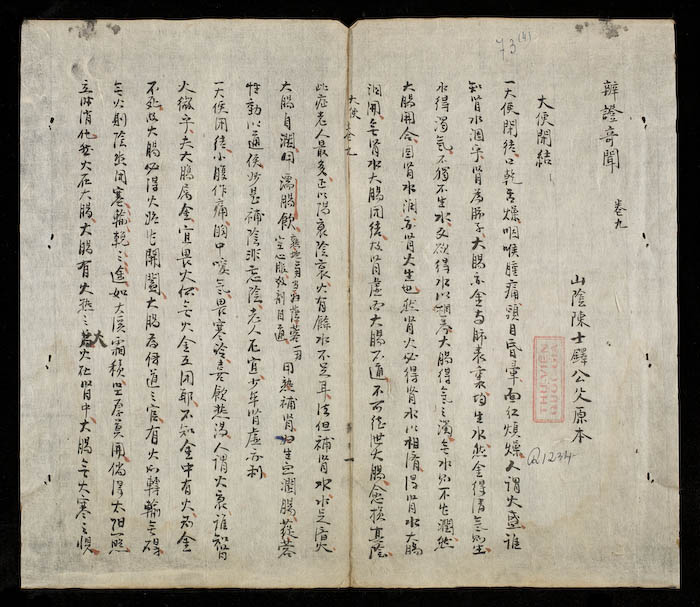 73 (4)
辨證奇聞 卷九
山陰陳士鐸公父原本
R.1234
大便閉結
一大便閉結口乾舌燥咽喉腫痛頭目昏暈面紅煩燥人謂火盛誰
知腎水涸乎腎為肺子大腸亦金与肺表裏均生水然金得清氣則生
水得濁氣不獨不生水又欲得水以相養大腸得氣之濁無水則不能潤然
大腸開合因腎水潤亦腎火生也然腎火必得腎水以相濟得腎水大腸
洞開無腎水大腸閉結故腎虛而大腸不通不可徒泄大腸愈損真陰
大便 卷九
此症老人最多正以陽衰陰衰火有餘水不足耳法但補腎水水足濟火
大腸自潤用濡腸飲 熟地二兩当歸蓯蓉一兩空心服数劑自通 用熟補腎歸生血潤腸蓯蓉
性動以通便妙是補陰非亡陰老人亦宜少年腎虛亦利
一大便閉結小腹作痛胸中噯氣畏寒冷喜飲熱湯人謂火衰誰知
火微乎夫大腸屬金宜畏火似無火金立閉耶不知金中有火則金
不死故大腸必得火始能開闔大腸為傳道之官有火則轉輸無碍
無火則陰氣閉塞輸輓之途如大溪霜積堅厚莫開倘得太陽一照
立時消化火在大腸大腸有火熱之火在腎中大腸無大寒之惧